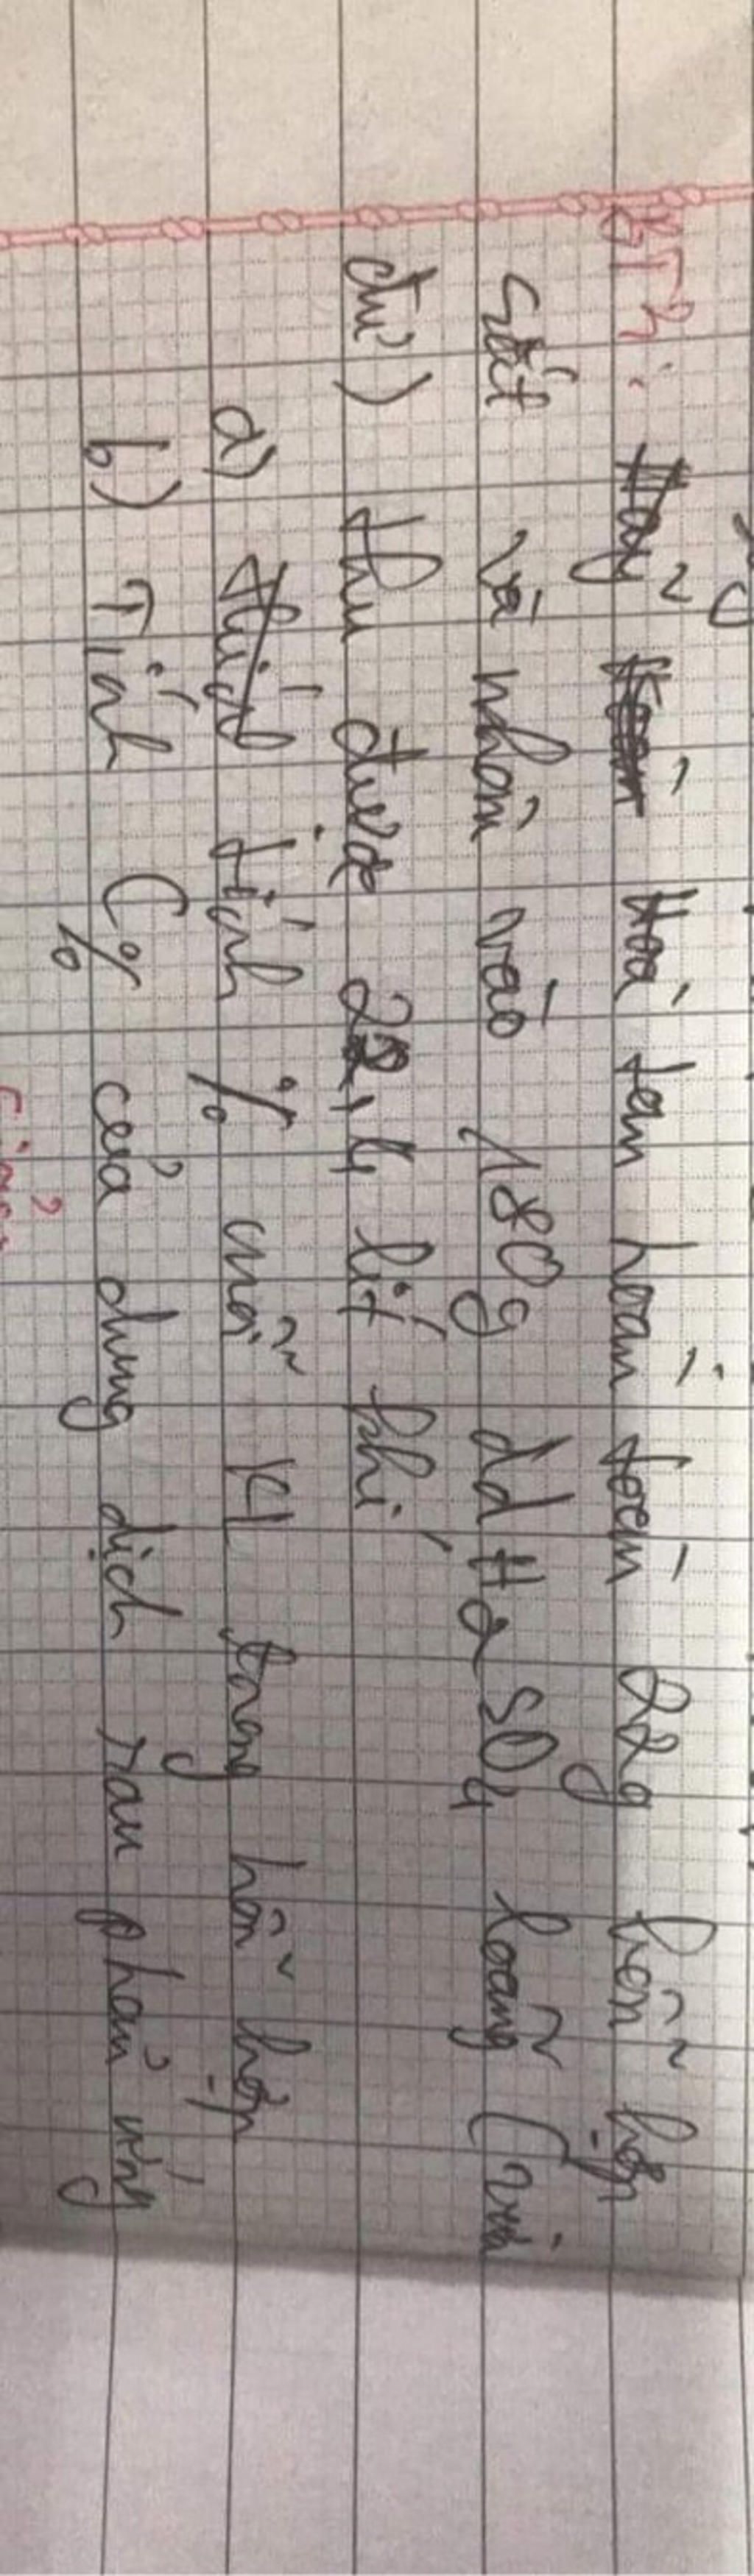 BT2: Hoà tan hoàn toàn 22g hỗn hợp
sắt và nhôm vào 180g dd H2SO4 loãng (vừa
đủ) thu được 22,4 lít khí
a) tính % mỗi KL trong hỗn hợp
b) Tính C% của dung dịch sau phản ứng